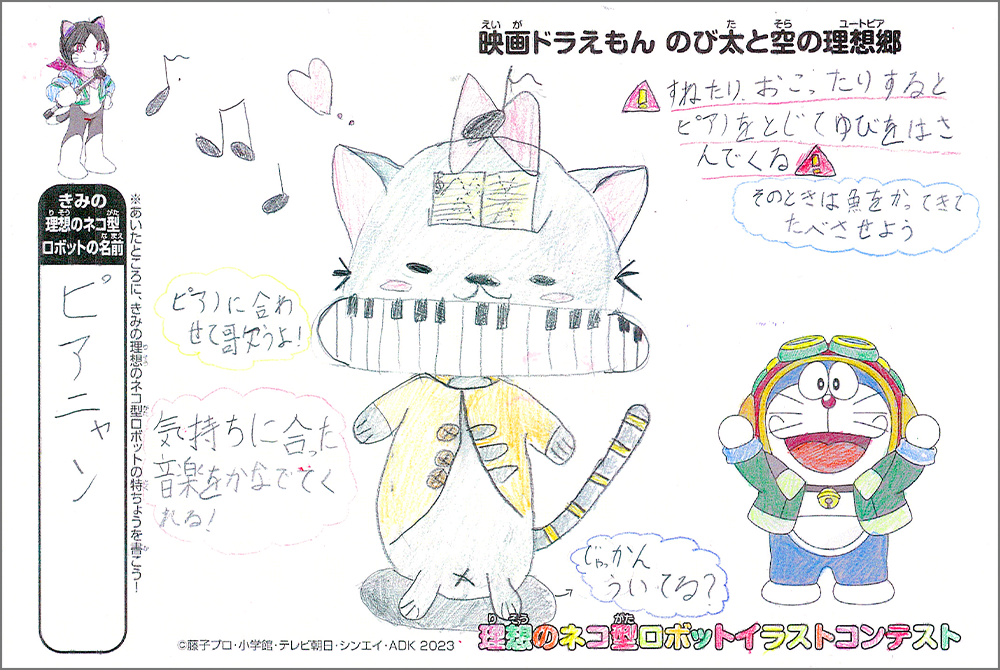 映画ドラえもん のび太と空の理想郷
えいが
た
そら
ユートピア
すねたり、おこったりすると
ピアノをとじてゆびをはさ
んでくる
そのときは魚をかってきて
たべさせよう
きみの
理想のネコ型
りそう
がた
ロボットの名前
なまえ
ピアニャン
※あいたところに、きみの理想のネコ型ロボットの特ちょうを書こう!
ピアノに合わ
せて歌うよ!
気持ちに合った
音楽をかなでてく
れる!
じゃっかん
ういてる?
理想のネコ型ロボットイラストコンテスト
りそう
がた
©藤子プロ・小学館・テレビ朝日・シンエイ・ADK 2023